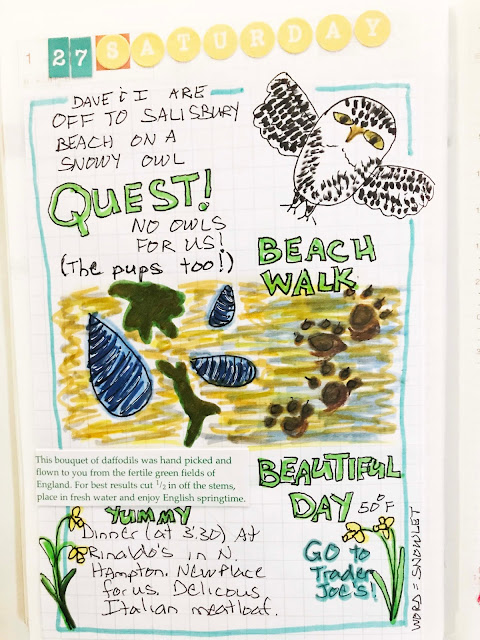 1 27 SATURDAY
DAVE & I ARE
OFF TO SALISBURY
BEACH ON A
SNOWY OWL
QUEST!
NO OWLS
FOR US!
(The pups too!)
BEACH
WALK
This bouquet of daffodils was hand picked and
flown to you from the fertile green fields of
England. For best results cut 1/2 in off the stems,
place in fresh water and enjoy English springtime.
BEAUTIFUL
DAY 50°F
YUMMY
Dinner (at 3:30) At
Rinaldo's in N.
Hampton. New Place
for us. Delicous
Italian meatloaf.
GO to
Trader
JOE'S!
WORD = SNOWLET